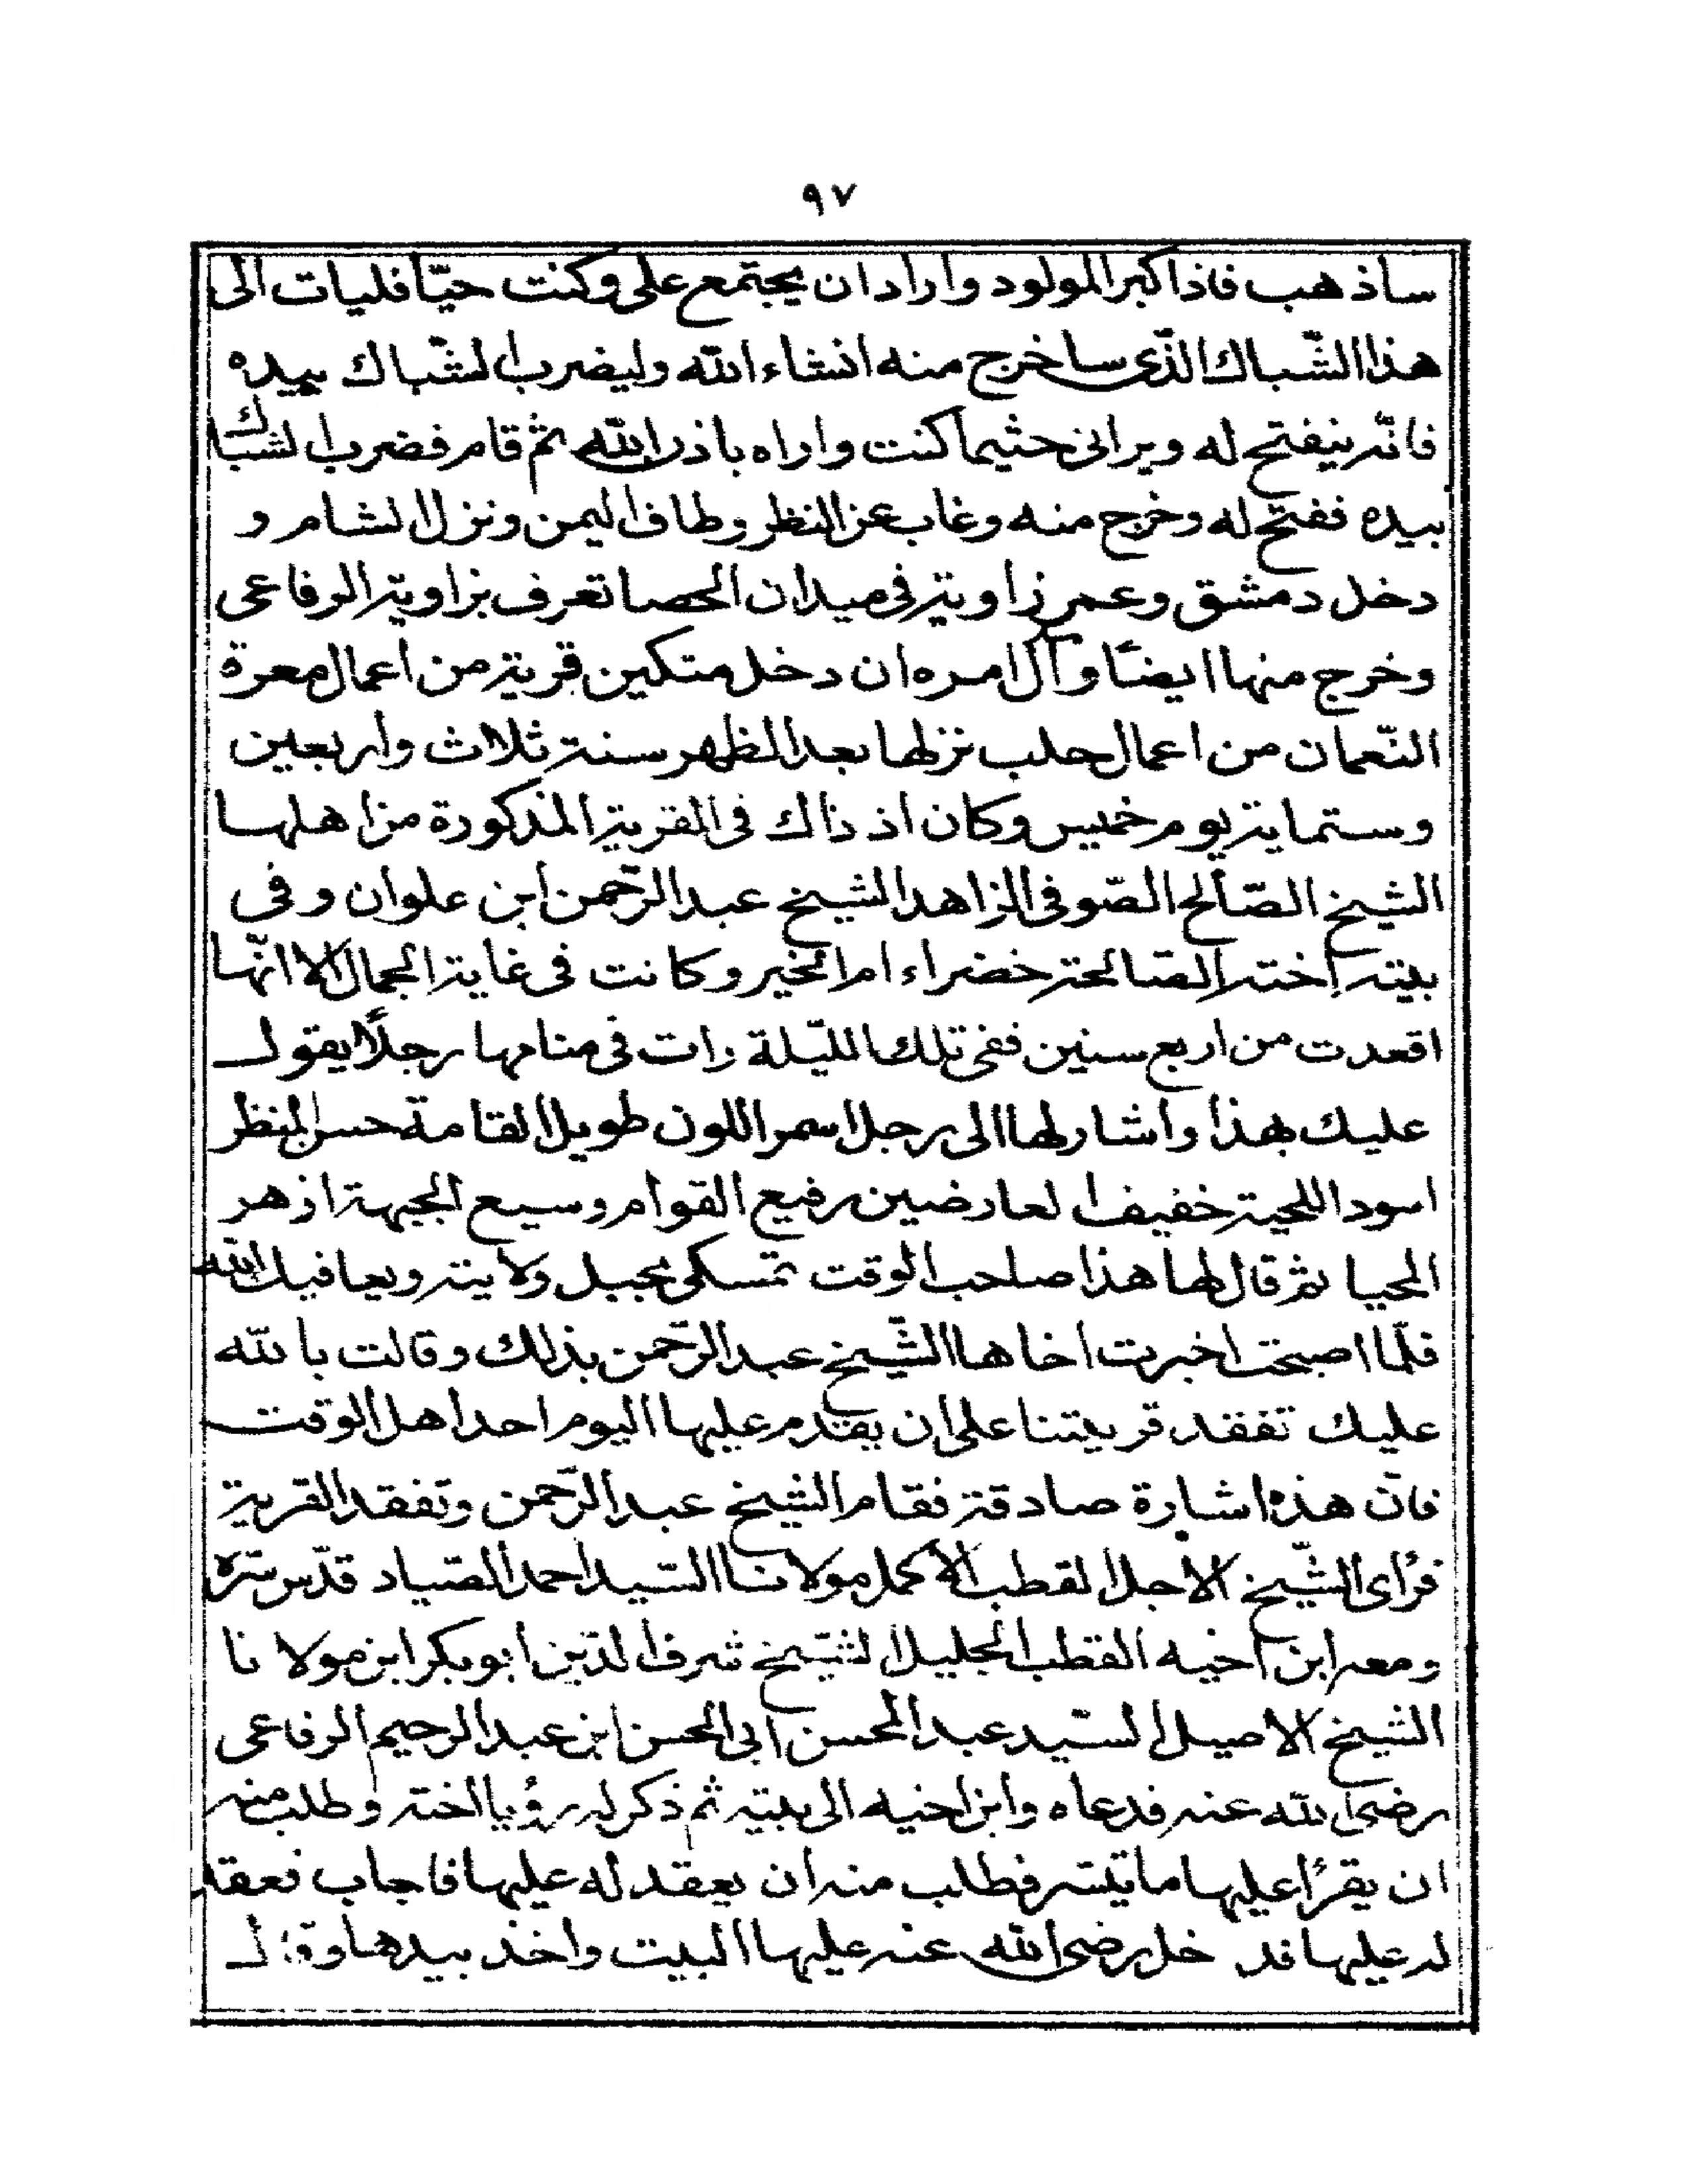 ٩٧
ساذهب فاذا كبر المولود واراد ان يجتمع على وكنت حيّا فليات الى
هذا الشّباك الذّى ساخرج منه انشاء الله وليضرب الشّباك بيده
فانّه ينفتح له ويرانى حثيما كنت واراه باذن الله ثم قام فضرب الشباك
بيده ففتح له وخرج منه وغاب عن النظر وطاف اليمن ونزل الشام و
دخل دمشق وعمر زاوية فى ميدان الحصا تعرف بزاوية الرفاعى
وخرج منها ايضًا وآل امره ان دخل متكين قرية من اعمال معرة
النّعمان من اعمال حلب نزلها بعد الظهر سنة ثلاث واربعين
وستماية يوم خميس وكان اذ ذاك فى القرية المذكورة من اهلها
الشيخ الصّالح الصّوفى الزاهد الشيخ عبد الرّحمن ابن علوان وفي
بيته اخته الصّالحة خضراء ام الخير وكانت فى غاية الجمال الا انّها
اقعدت من اربع سنين ففى تلك الليّلة رات فى منامها رجلًا يقول
عليك بهذا واشار لها الى رجل اسمر اللون طويل القامة حسن المنظر
اسود اللحية خفيف العارضين رفيع القوام وسيع الجبهة ازهر
المحيا ثم قال لها هذا صاحب الوقت تمسكى بحبل ولايته ويعافيك الله
فلمّا اصبحت اخبرت اخاها الشّيخ عبد الرّحمن بذلك وقالت بالله
عليك تفقد قريتنا على ان يقدم عليها اليوم احد اهل الوقت
فانّ هذه اشارة صادقة فقام الشيخ عبد الرّحمن وتفقد القرية
فرأى الشّيخ الاجل القطب الاكمل مولانا السّيد احمد الصّياد قدّس سّره
ومعه ابن اخيه القطب الجليل الشّيخ شرف الدّين ابو بكر ابن مولانا
الشيخ الاصيل السّيد عبد المحسن ابى الحسن ابن عبد الرحيم الرفاعى
رضى الله عنه فدعاه وابن اخيه الى بيته ثم ذكر له رؤيا اخته وطلب منه
ان يقرأ عليها ما تيّسر فطلب منه ان يعقد له عليها فاجاب فعقد
له عليها فد خل رضى الله عنه عليها البيت واخذ بيدها وقال